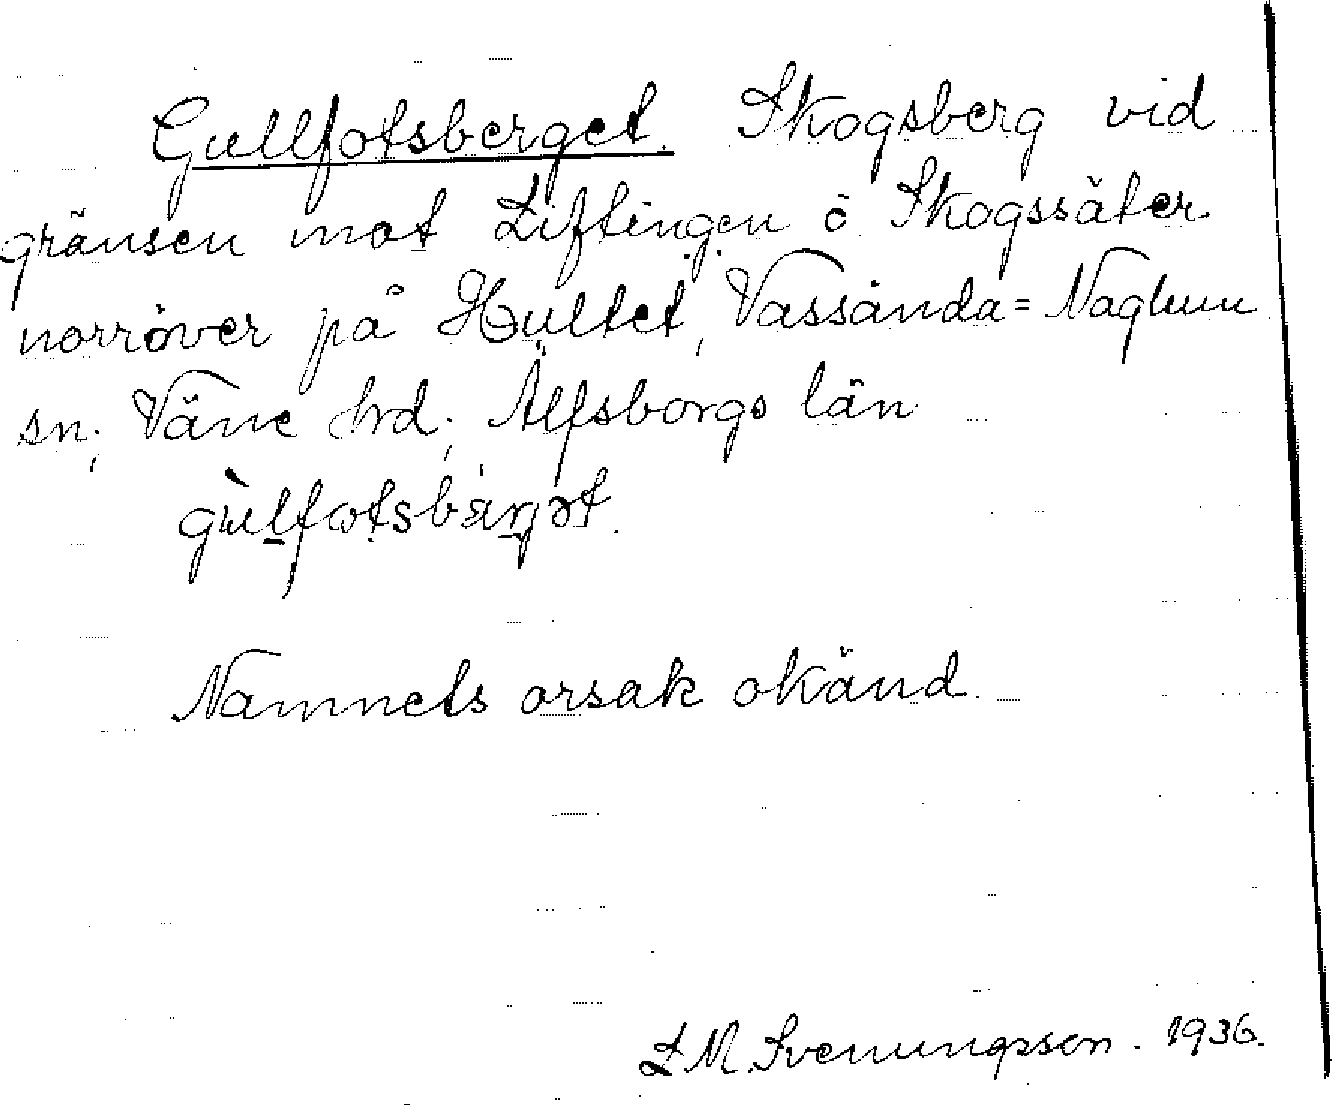 Gullfotsberget. Skogsberg vid
gränsen mot Liftingen ö. Skogssäter
norröver på Hultet, Vassända=Naglum
sn; Väne hrd; Älfsborgs län
gùlfωtsbærgət.
Namnets orsak okänd.
L M. Svenungsson. 1936.